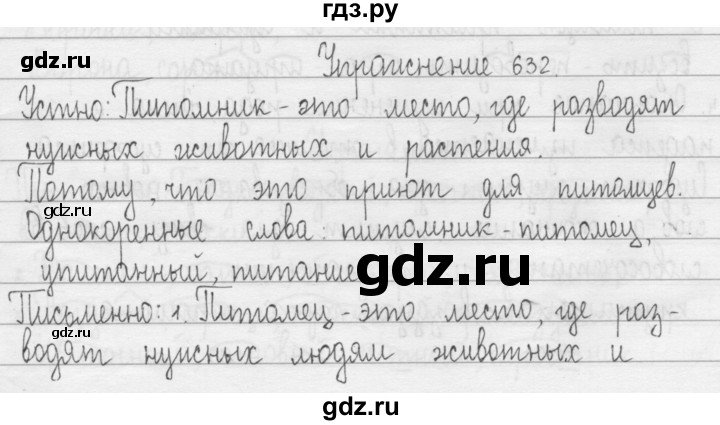 гдз.ру
gdz.ru gdz.ru
Упражнение 632.
Устно: Питомник - это место, где разводят
gdz.ru
нужных животных и растения.
Потому, что это приют для питомцев.
gdz.ru gdz.ru
Однокоренные слова: питомник - питомец,
упитанный, питание
gdz.ru
Письменно: 1. Питомец - это место, где раз-
gdz.ru gdz.ru
водят нужных людям животных и
gdz.ru